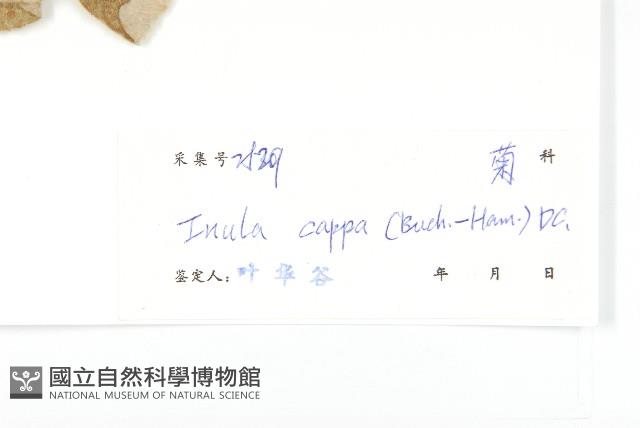 采集号 菊 科
Inula cappa (Buch.-Ham.) DC.
鉴定人: 叶华谷 年 月 日
國立自然科學博物館
NATIONAL MUSEUM OF NATURAL SCIENCE